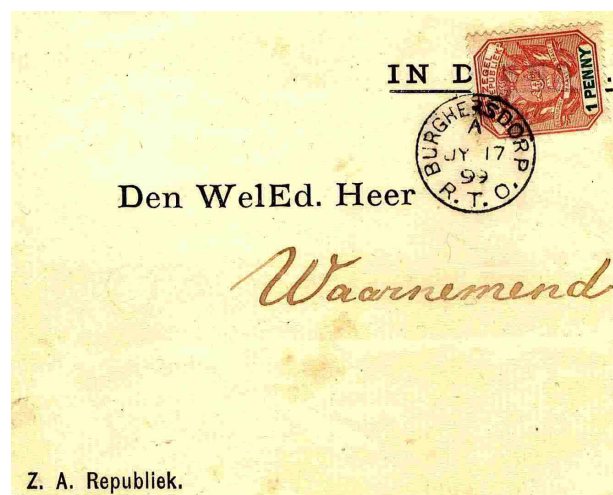 IN D
ZEGEL
REPUBLIEK
1 PENNY
BURGHERSDORP
A
JY 17
99
R. T. O.
Den WelEd. Heer
Waarnemend
Z. A. Republiek.